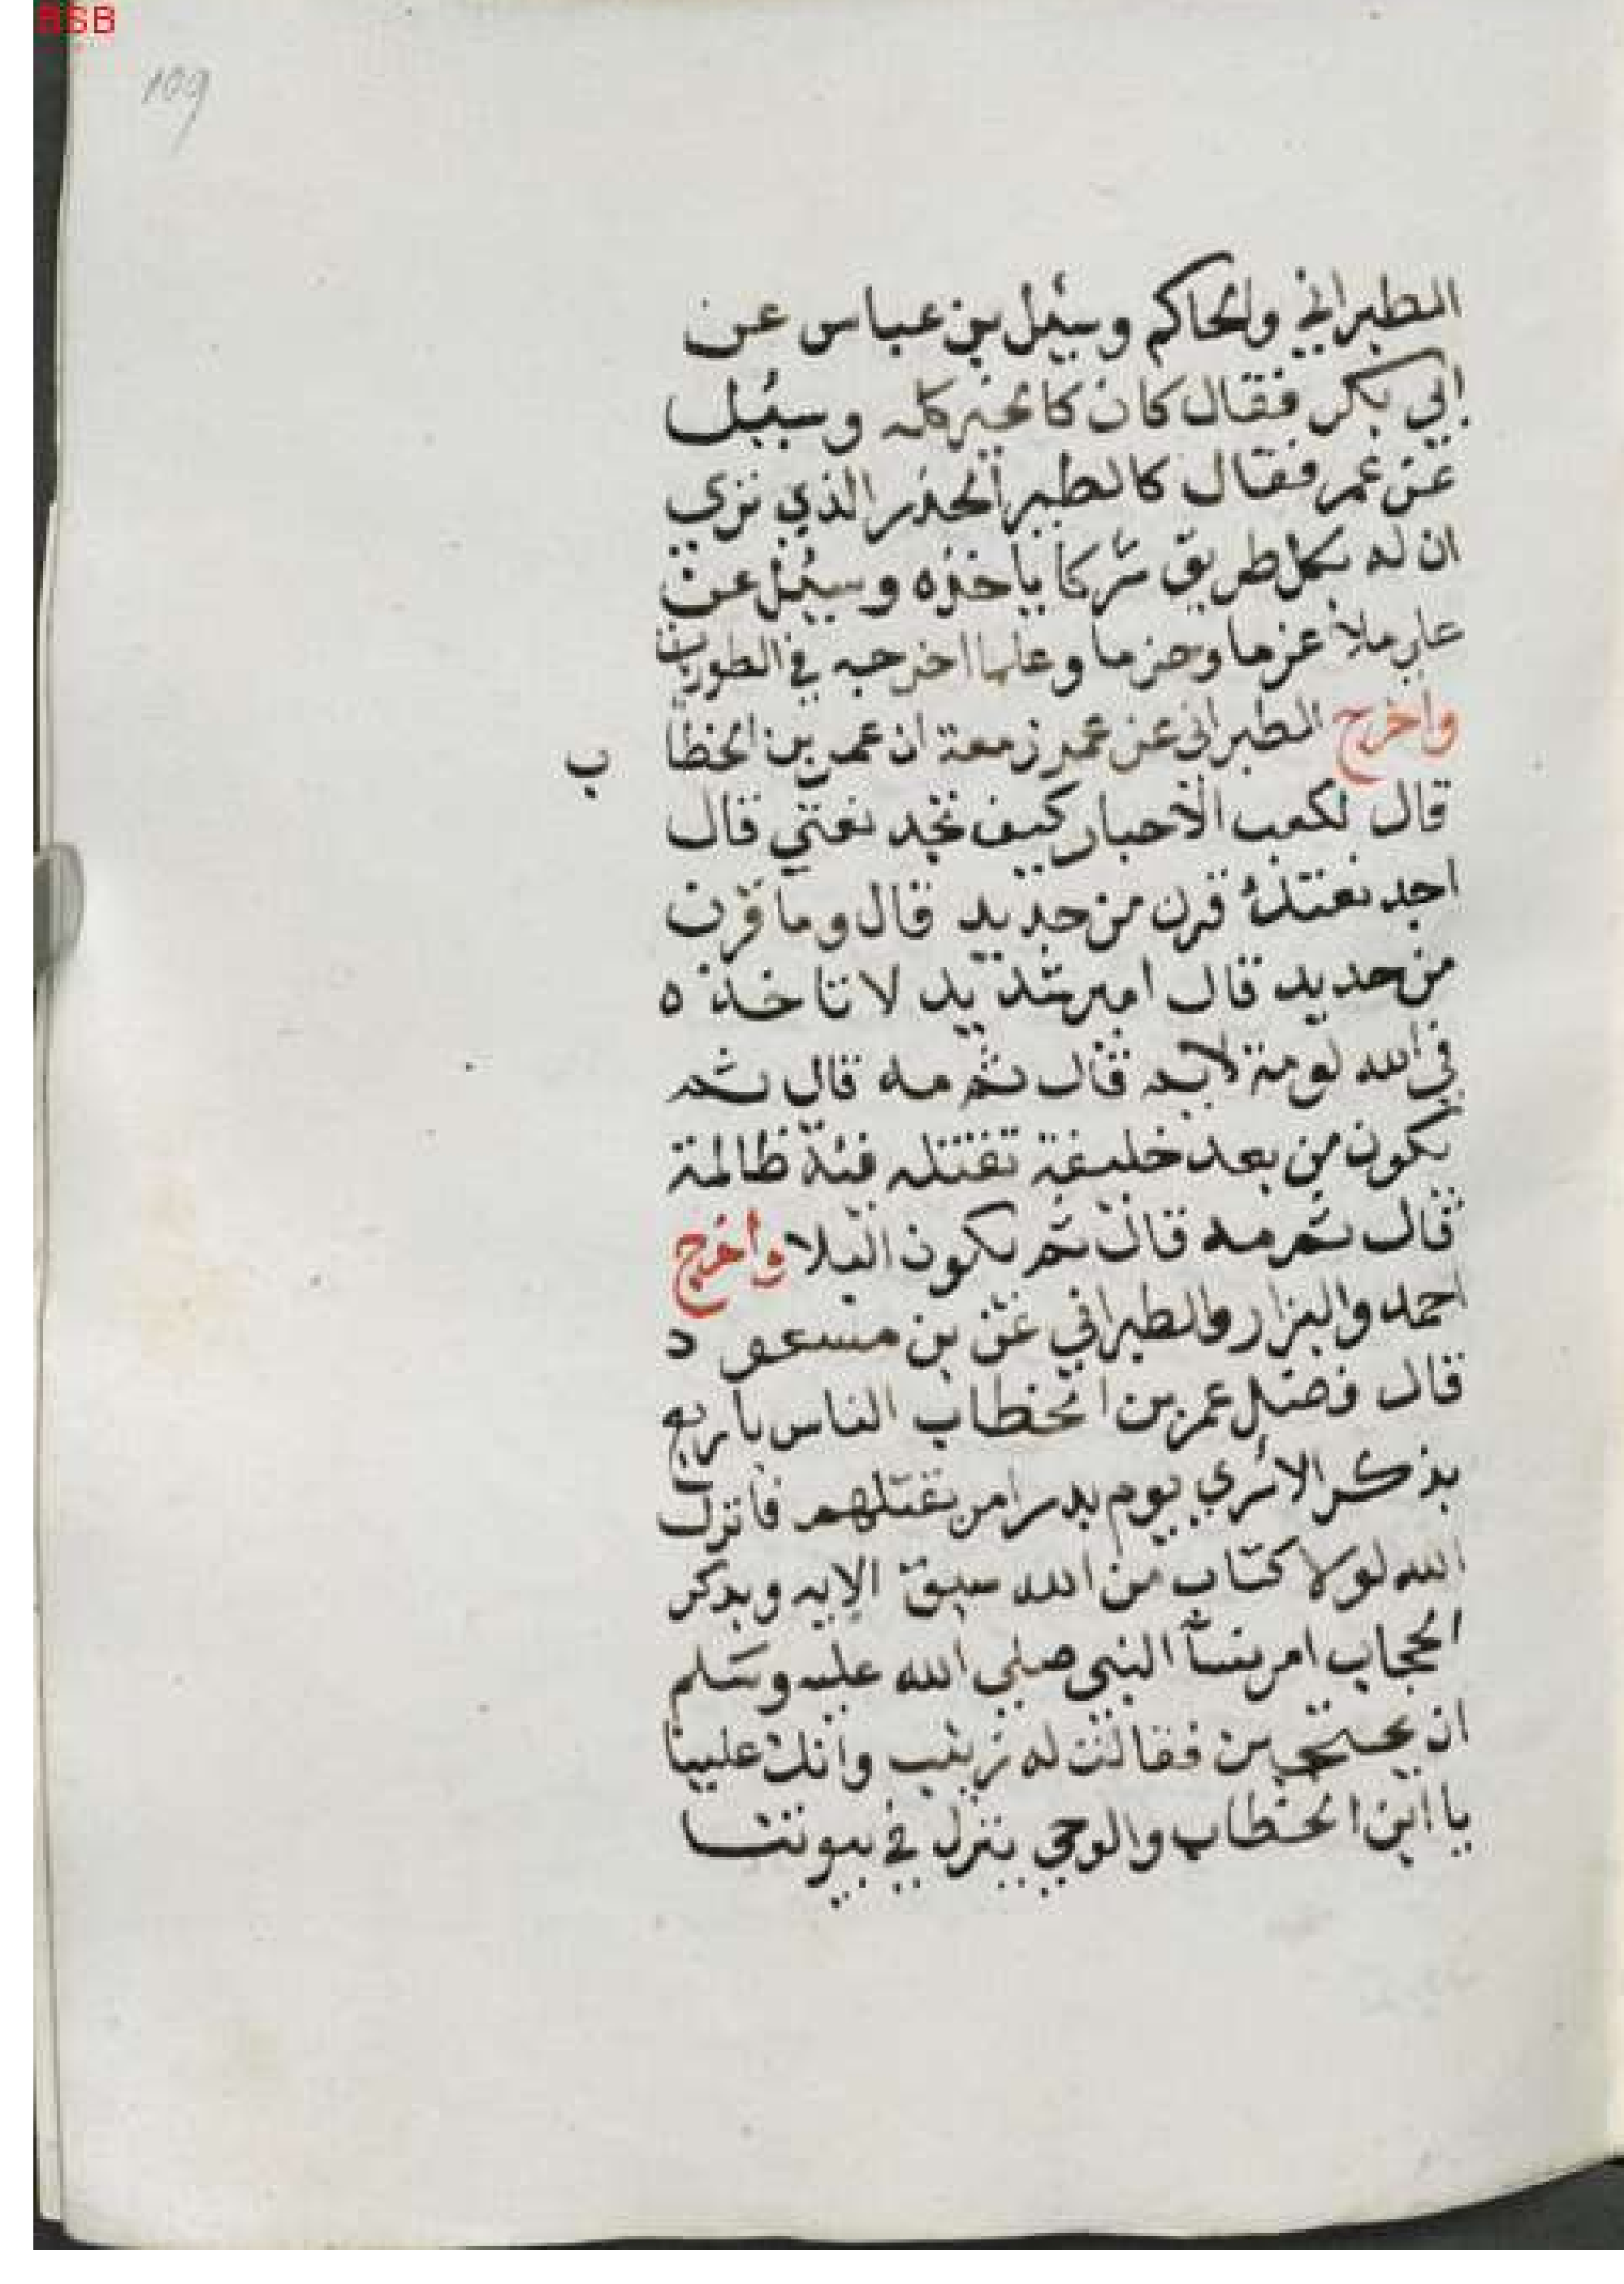 BSB
109
الطبراني والحاكم وسئل بن عباس عن
ابي بكر فقال كان كالخير كله وسئل
عن عمر فقال كالطير الحذر الذي نري
ان له بكل طريق شركا ياخذه وسئل عن
ملأ عزما وحزما وعلما اخرجه في الطوريات
واخرج الطبراني عن عمر زمعة ان عمر بن الخطا
ب
قال لكعب الاحبار كيف تجد نعتي قال
اجد نعتك قرن من حديد قال وما قرن
من حديد قال امير شديد لا تاخذه
في الله لومة لايم قال ثم مه قال ثم
يكون من بعد خليفة تقتله فئة ظالمة
قال ثم مه قال ثم يكون البلا واخرج
احمد والبزار والطبراني عن بن مسعود
قال فضل عمر بن الخطاب الناس باربع
بذكر الاسري يوم بدر امر بقتلهم فانزل
الله لولا كتاب من الله سبق الايه وبذكر
الحجاب امر نسآ النبي صلي الله عليه وسلم
ان يحتجبن فقالت له زينب وانك علينا
يا ابن الخطاب والوحي ينزل في بيوتنا